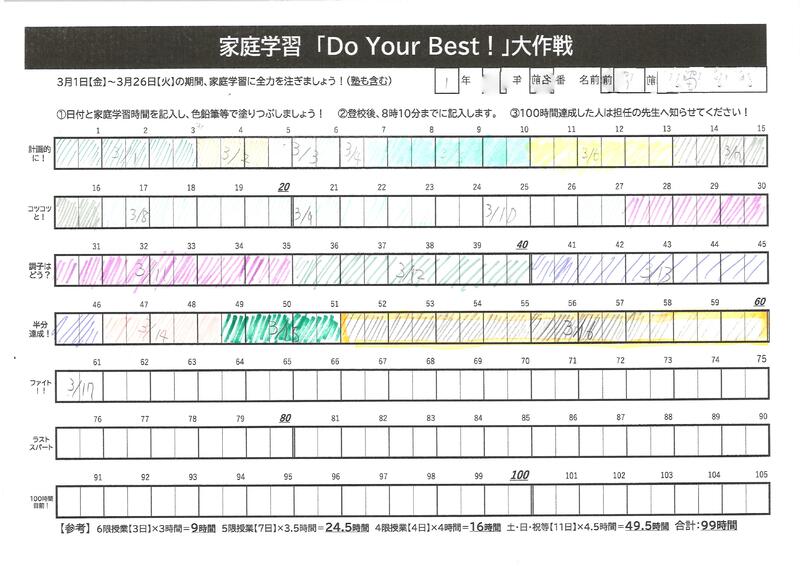 家庭学習 「Do Your Best！」大作戦
3月1日【金】～3月26日【火】の期間、家庭学習に全力を注ぎましょう！（塾も含む）
1 年 番 名前
①日付と家庭学習時間を記入し、色鉛筆等で塗りつぶしましょう！ ②登校後、8時10分までに記入します。 ③100時間達成した人は担任の先生へ知らせてください！
1 2 3 4 5 6 7 8 9 10 11 12 13 14 15
計画的に！ 3/1 3/2 3/3 3/4 3/5
16 17 18 19 20 21 22 23 24 25 26 27 28 29 30
コツコツと！ 3/8 3/9 3/10
31 32 33 34 35 36 37 38 39 40 41 42 43 44 45
調子はどう？ 3/11 3/12 3/13
46 47 48 49 50 51 52 53 54 55 56 57 58 59 60
半分達成！ 3/14 3/15 3/16
61 62 63 64 65 66 67 68 69 70 71 72 73 74 75
ファイト！！ 3/17
76 77 78 79 80 81 82 83 84 85 86 87 88 89 90
ラストスパート
91 92 93 94 95 96 97 98 99 100 101 102 103 104 105
100時間目前！
【参考】 6限授業【3日】×3時間＝9時間 5限授業【7日】×3.5時間＝24.5時間 4限授業【4日】×4時間＝16時間 土・日・祝等【11日】×4.5時間＝49.5時間 合計：99時間